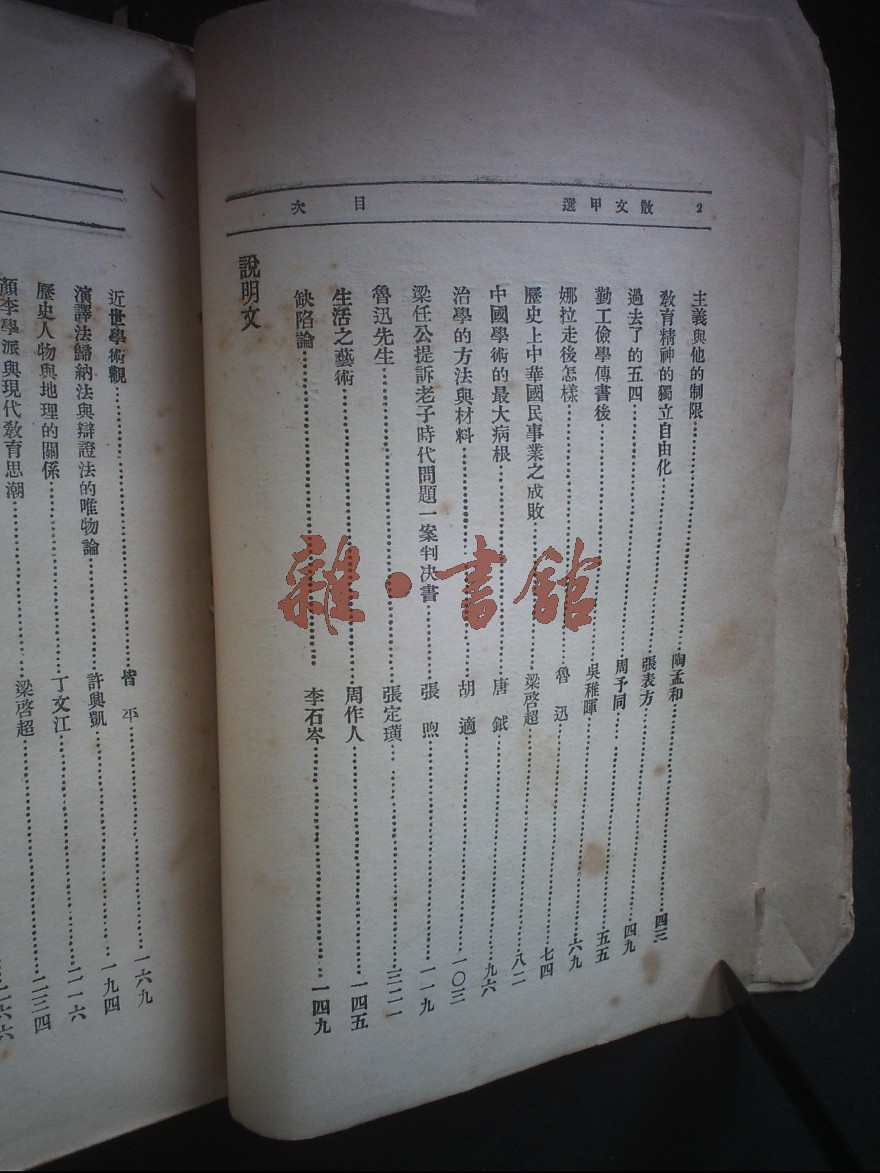 2 散文甲選 目次
主義與他的制限 陶孟和 四三
教育精神的獨立自由化 張表方 四九
過去了的五四 周予同 五五
勤工儉學傳書後 吳稚暉 六九
娜拉走後怎樣 魯迅 七四
歷史上中華國民事業之成敗 梁啓超 八二
中國學術的最大病根 唐鉞 九六
治學的方法與材料 胡適 一〇三
梁任公提訴老子時代問題一案判決書 張煦 一一九
魯迅先生 張定璜
生活之藝術 周作人 一四五
缺陷論 李石岑 一四九
說明文
近世學術觀 皆平 一六九
演譯法歸納法與辯證法的唯物論 許興凱 一九四
歷史人物與地理的關係 丁文江 二一六
顏李學派與現代教育思潮 梁啓超 二三四
二六六
雜·書館